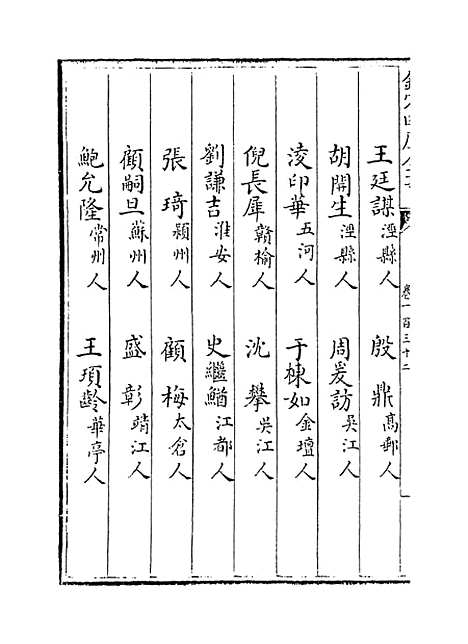 欽定四庫全書
卷一百三十二
王廷謀涇縣人 殷鼎高郵人
胡開生涇縣人 周爰訪吳江人
淩印華五河人 于棟如金壇人
倪長犀贛榆人 沈攀吳江人
劉謙吉淮安人 史繼鰌江都人
張琦潁州人 顧梅太倉人
顧嗣旦蘇州人 盛彰靖江人
鮑允隆常州人 王頊齡華亭人